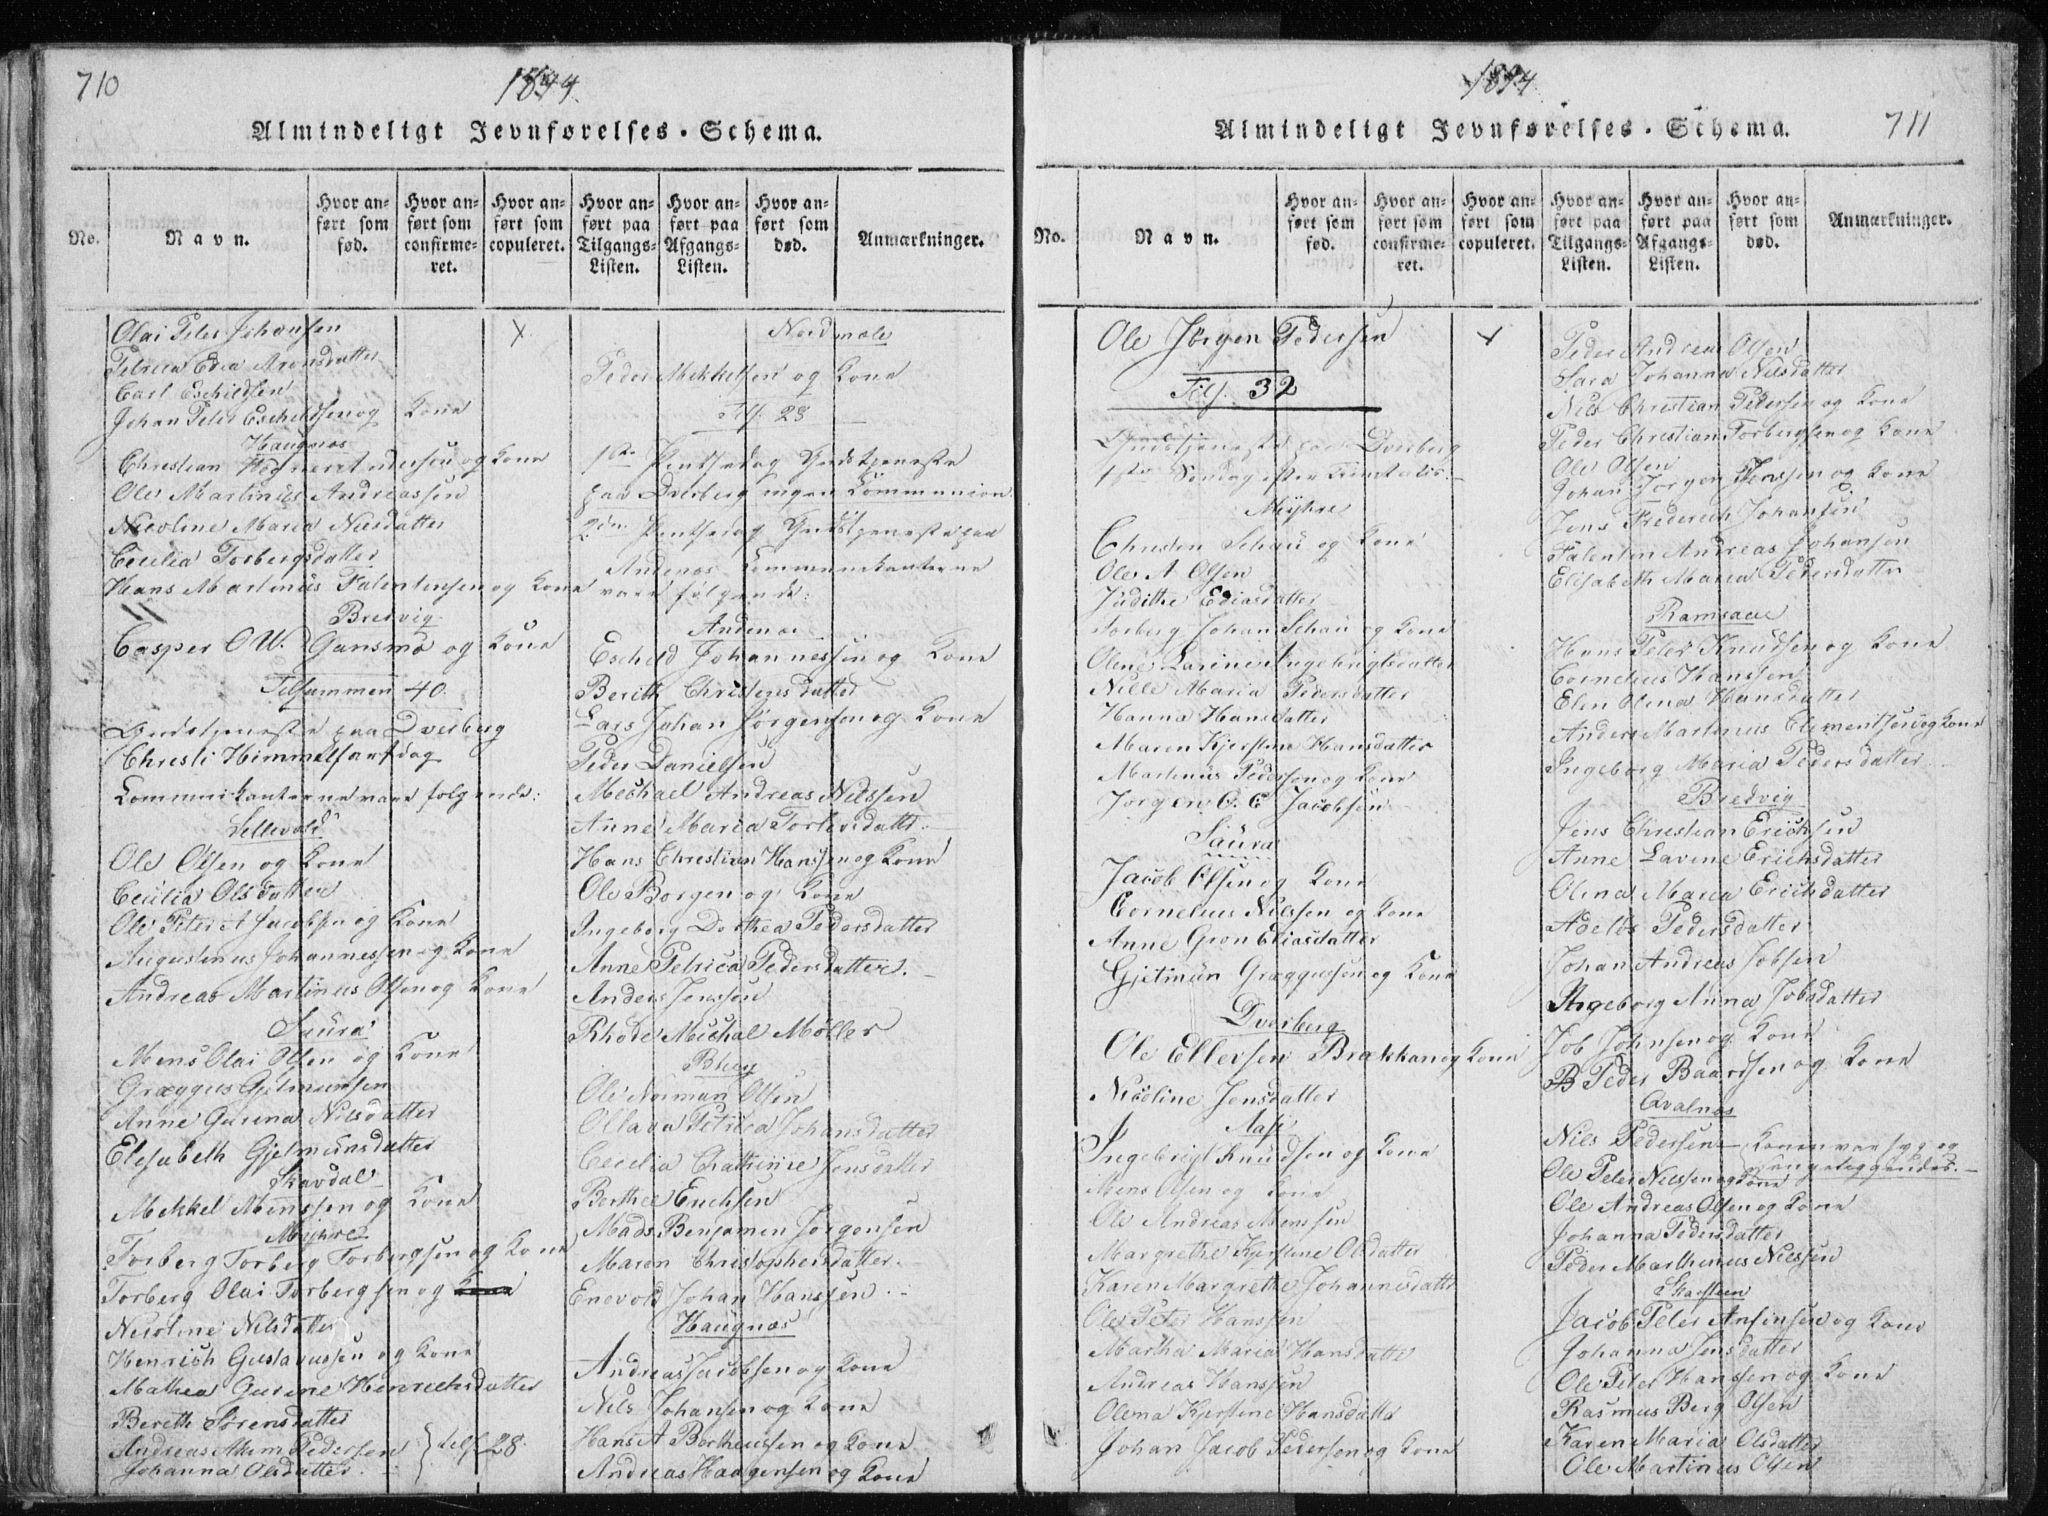 710
1844.
Almindeligt Jevnførelses-Schema.
No.
Navn.
Hvor anført som fød.
Hvor anført som confirmeret.
Hvor anført som copuleret.
Hvor anført paa Tilgangs-Listen.
Hvor anført paa Afgangs-Listen.
Hvor anført som død.
Anmærkninger.
Olai Peter Johansen
Petrica Edea Aronsdatter
Carl Eschildsen
Johan Peter Eschildsen og Kone
Haugnæs
Christian Andersen og Kone
Ole Martinus Andreassen
Nicoline Maria Nilsdatter
Cecilia Torbergsdatter
Hans Martinus Falentinsen og Kone
Bredvig
Casper O W. Gunsmo og Kone
Tilsammen 40.
Gudstjeneste paa Dverberg
Christi Himmelfartsdag
Communikanterne vare følgende:
Sellevold
Ole Olsen og Kone
Cecilia Olsdatter
Ole Peter A Jacobsen og Kone
Augustinus Johannessen og Kone
Andreas Martinus Olsen og Kone
Saura
Mons Olai Olsen og Kone
Græggus Gjelmunsen
Anne Gurina Nilsdatter
Elisabeth Gjelmunsdatter
Skavdal
Mekkel Monssen og Kone
Myhre
Torberg Torberg Torbergsen og Kone
Torberg Olai Torbergsen og Kone
Nicoline Nilsdatter
Henrich Gustavussen og Kone
Mathea Gurine Henrichsdatter
Bereth Sørensdatter
Andreas Pedersen } tils. 28.
Johanna Olsdatter
x Nordmæle
Peder Mekkelsen og Kone
Tils. 28
1ste Pintsedag Gudstjeneste
paa Dverberg ingen Communion.
2den Pintsedag Gudstjeneste paa
Andenæs Communikanterne
vare følgende:
Andenæs
Eschild Johannessen og Kone
Berith Christensdatter
Lars Johan Jørgensen og Kone
Peder Danielsen
Michael Andreas Nilssen
Anne Maria Torbersdatter
Hans Christian Hanssen og Kone
Ole Borgen og Kone
Ingeborg Dorthea Pedersdatter
Anne Petrica Pedersdatter.
Anders Jenssen
Rhode Michal Møller
Bluy
Ole Norman Olsen
Ollava Petrica Johansdatter
Cecilia Cathrine Jensdatter
Berthel Erichsen
Mads Benjamin Jørgensen
Maren Christophersdatter.
Enevold Johan Hanssen.
Haugnæs
Andreas Jacobsen og Kone
Nils Johansen og Kone
Hans A Bertheussen og Kone
Andreas Haagensen og Kone
1844.
711
Almindeligt Jevnførelses-Schema.
No.
Navn.
Hvor anført som fød.
Hvor anført som confirmeret.
Hvor anført som copuleret.
Hvor anført paa Tilgangs-Listen.
Hvor anført paa Afgangs-Listen.
Hvor anført som død.
Anmærkninger.
Ole Jørgen Pedersen x
Tils. 32
Gudstjeneste paa Dverberg
1ste Søndag efter Trinitatis.
Myhre
Christen Schau og Kone
Ole A Olsen
Judithe Eliasdatter
Torberg Johan Schau og Kone
Olene Larine Ingebrigtsdatter
Nille Maria Pedersdatter
Hanna Hansdatter
Maren Kjerstine Hansdatter
Martinus Pedersen og Kone
Jørgen C. C Jacobsen
Saura
Jacob Olsen og Kone
Cornelius Nilssen og Kone
Anne Gron Eliasdatter
Gjelmun Græggussen og Kone
Dverberg
Ole Ellefsen Brækkan og Kone
Nicoline Jensdatter
Aase
Ingebrigt Knudsen og Kone
Mons Olsen og Kone
Ole Andreas Monssen
Margrethe Kjerstine Olsdatter
Karen Margrethe Johannesdatter
Ole Peter Hanssen
Martha Maria Hansdatter
Andreas Hanssen
Olena Kjerstine Hansdatter
Johan Jacob Pedersen og Kone
Peder Andreas Olsen
Sara Johanna Nilsdatter
Nils Christian Pedersen og Kone
Peder Christian Torbergsen og Kone
Ole Olsen
Johan Jørgen Jenssen og Kone
Jens Frederich Johansen
Falentin Andreas Johansen
Elisabeth Maria Pedersdatter
Ramsaae
Hans Peter Knudsen og Kone
Cornelius Hanssen
Elen Olina Hansdatter
Anders Martinus Clementsen og Kone
Ingeborg Maria Pedersdatter
Bredvig
Jens Christian Erichsen
Anne Lavine Erichsdatter
Olina Maria Erichsdatter
Adelos Pedersdatter
Johan Andreas Jobsen
Ingeborg Anna Jobsdatter
Job Johnsen og Kone
Peder Baardsen og Kone
Qvalnæs
Nils Pedersen – Konen var syg og sengeliggendes. –
Ole Peter Nilssen og Kone
Ole Andreas Olsen og Kone
Johanna Pedersdatter
Peder Marthinus Nilssen
Skarsteen
Jacob Peter Ansinsen og Kone
Johanna Jensdatter
Ole Peter Hanssen og Kone
Rasmus Berg Olsen
Karen Maria Olsdatter
Ole Martinus Olsen